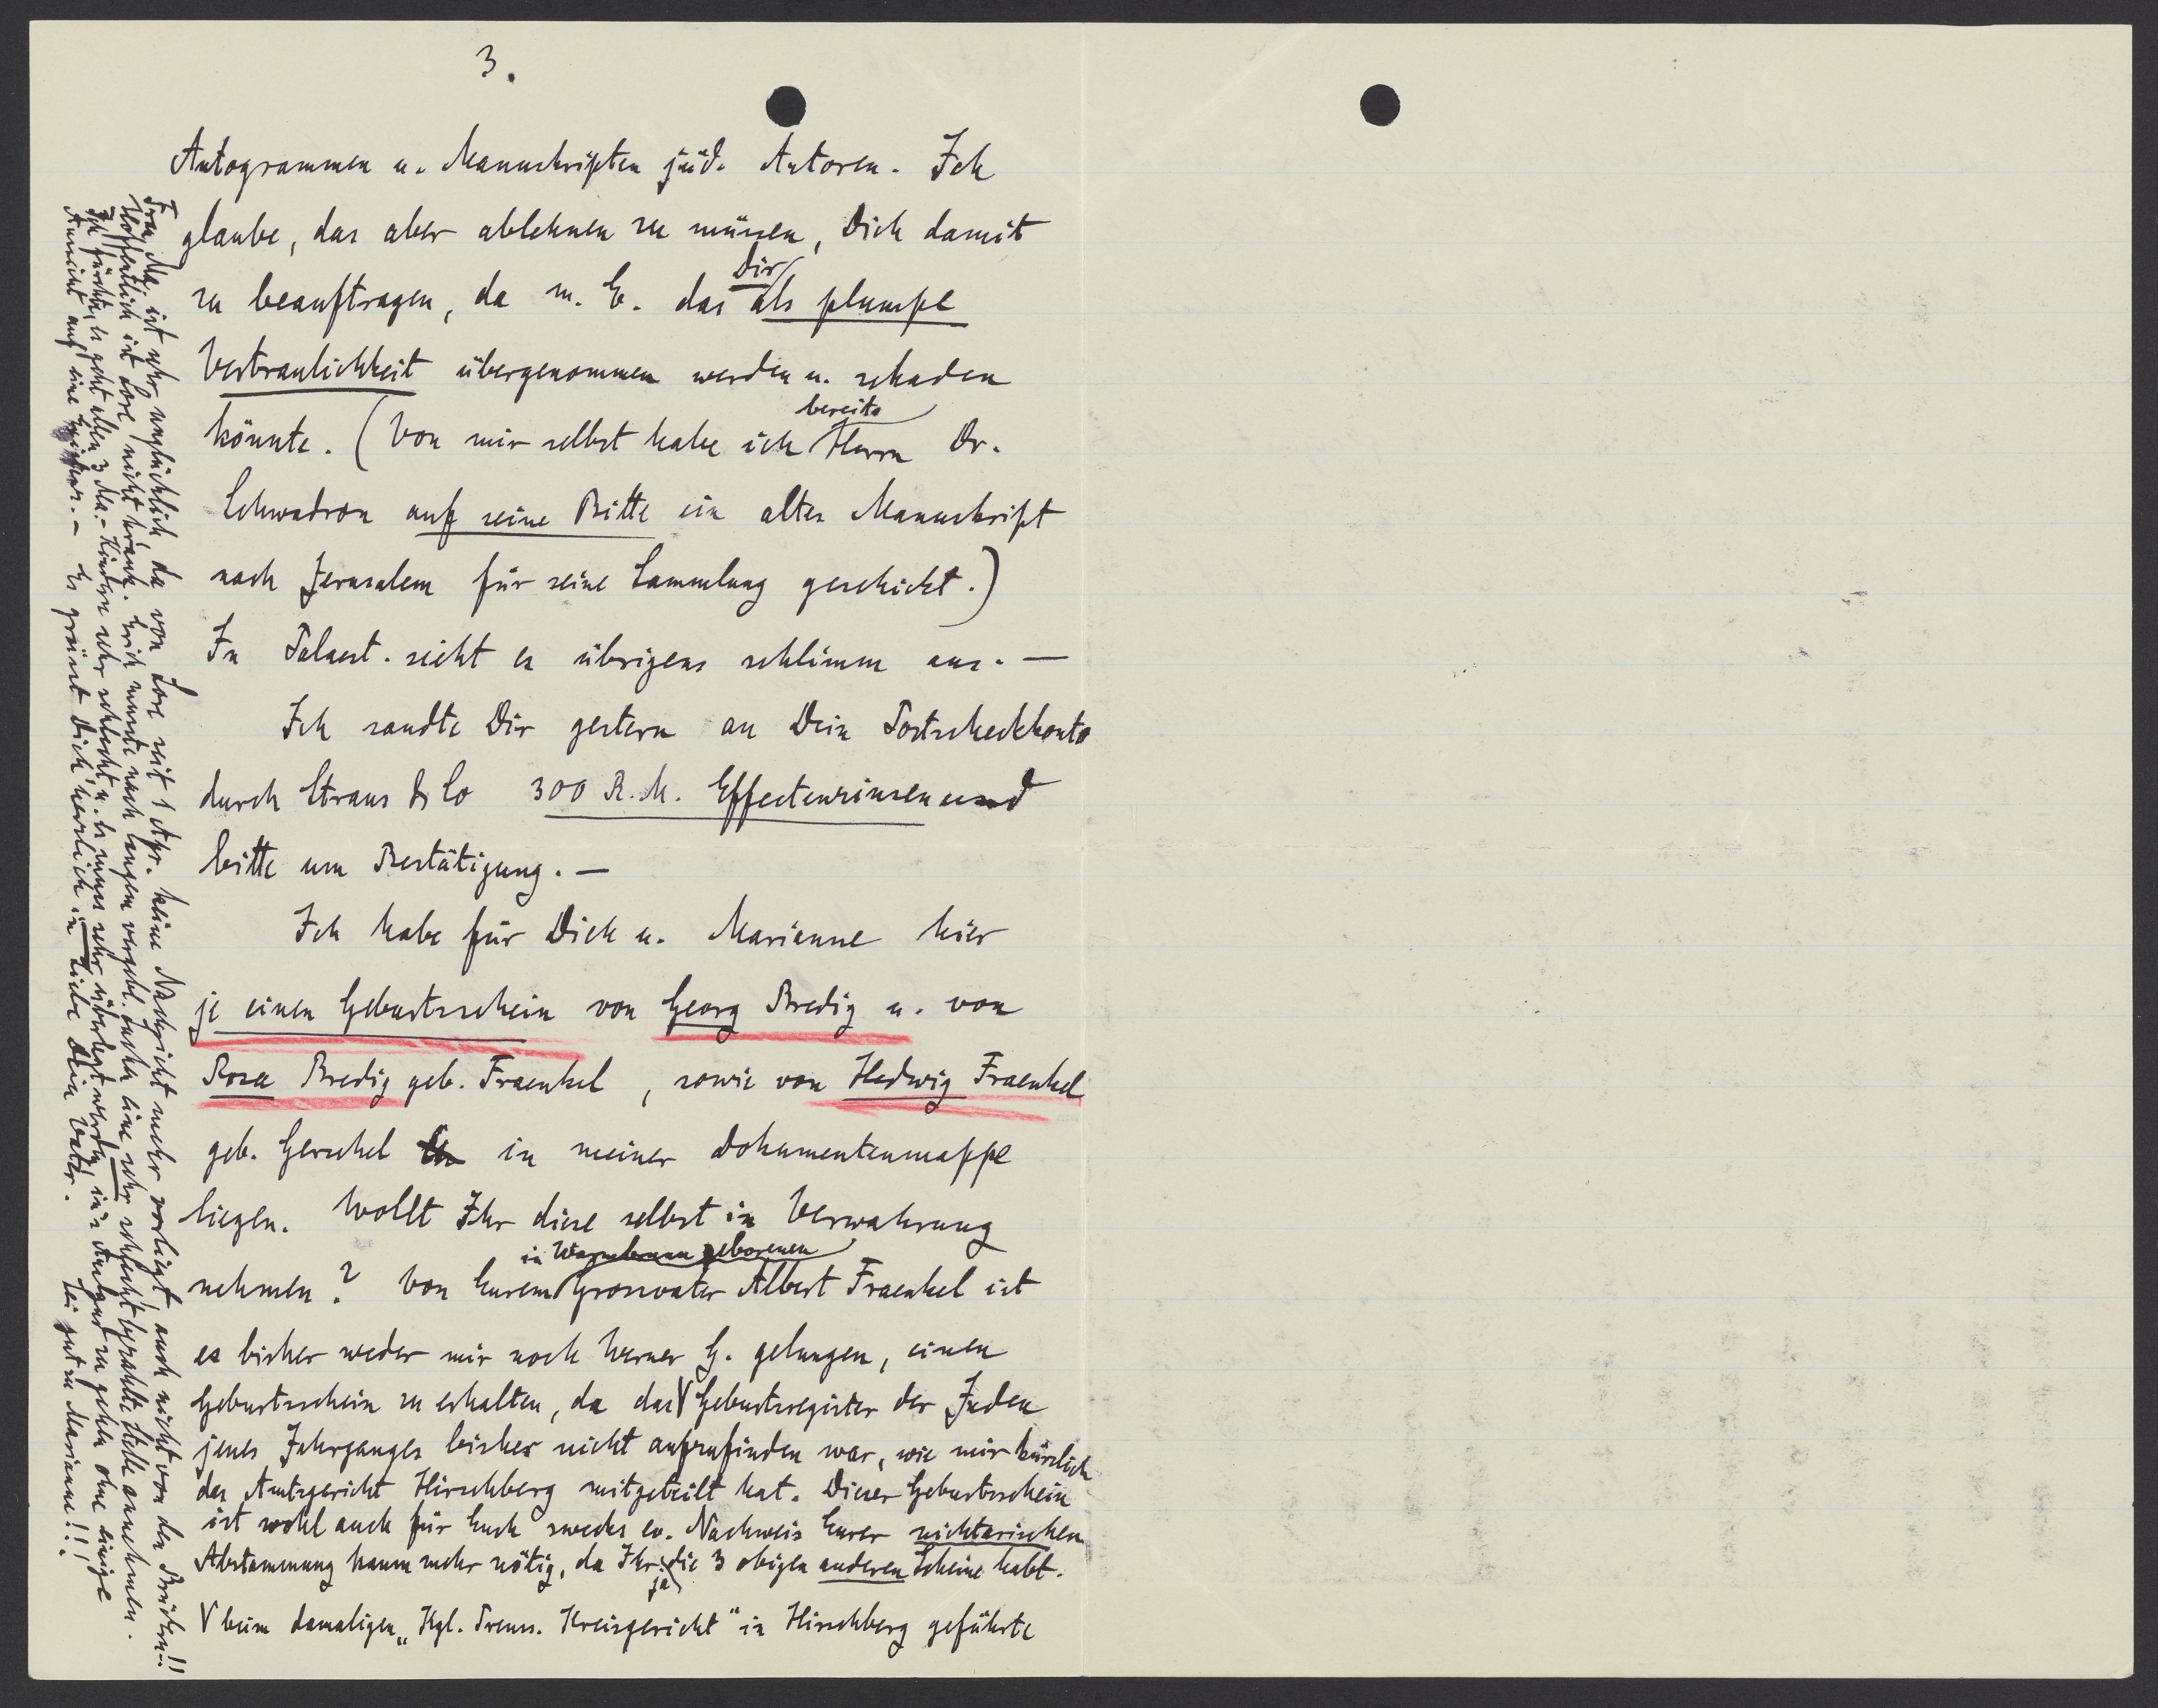 3.
Autogrammen u. Manuskripten jüd. Autoren. Ich
glaube, das aber ablehnen zu müssen, Dich damit
zu beauftragen, da m. E. das Dir als plumpe
Vertraulichkeit übergenommen werden u. schaden
könnte. (Von mir selbst habe ich bereits Herrn Dr.
Schwadron auf seine Bitte ein altes Manuskript
nach Jerusalem für seine Sammlung geschickt.)
In Palaest. sieht es übrigens schlimm aus. —
Ich sandte Dir gestern an Dein Postscheckkonto
durch Straus & Co 300 R.M. Effectenzinsen und
bitte um Bestätigung. —
Ich habe für Dich u. Marianne hier
je einen Geburtsschein von Georg Bredig u. von
Rosa Bredig geb. Fraenkel, sowie von Hedwig Fraenkel
geb. Gerschel in meiner Dokumentenmappe
liegen. Wollt Ihr diese selbst in Verwahrung
nehmen? Von Eurem in Warmbrunn geborenen Grossvater Albert Fraenkel ist
es bisher weder mir noch Werner G. gelungen, einen
Geburtsschein zu erhalten, da das V Geburtsregister der Juden
jenes Jahrganges bisher nicht aufzufinden war, wie mir kürzlich
das Amtsgericht Hirschberg mitgeteilt hat. Dieser Geburtsschein
ist wohl auch für Euch zwecks ev. Nachweis Eurer nichtarischen
Abstammung kaum mehr nötig, da Ihr ja die 3 obigen anderen Scheine habt.
V beim damaligen „Kgl. Preuss. Kreisgericht" in Hirschberg geführte
Frau Ma. ist sehr unglücklich da von Lore seit 1 Apr. keine Nachricht mehr vorliegt, auch nicht von den Brüdern!!
Hoffentlich ist Lore nicht krank. Erich musste nach langem vergebl. Suchen eine sehr schlecht bezahlte Stelle annehmen.
Ich fürchte, es geht allen 3 Ma.-Kindern sehr schlecht u. es muss sehr überlegt werden, in's Ausland zu gehen ohne einige
Aussicht auf eine Existenz. — Es grüsst Dich herzlich in Liebe Dein Vater. Sei gut zu Marianne!!